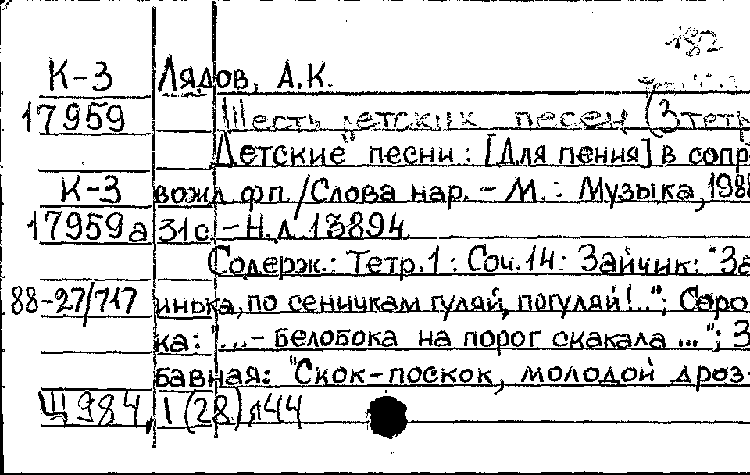 182
К-3 Лядов, А.К.
17959 Шесть детских песен (3 тетр
Детские песни : [Для пения] в сопр
К-3 вожд. фп. / Слова нар. - М. : Музыка, 198
17959а 31с. - Н.д. 13894
Содерж.: Тетр.1 : Соч.14: Зайчик: "За
88-27/717 инька, по сеничкам гуляй, погуляй!.."; Соро
ка: "...- белобока на порог скакала ..."; З
бавная: "Скок-поскок, молодой дроз-
Щ984.1(28)л44